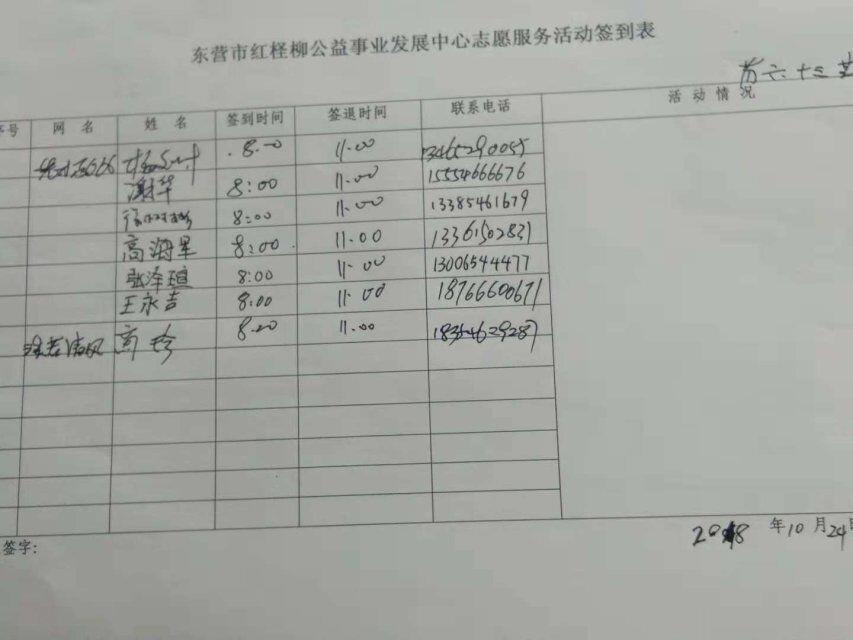 东营市红柽柳公益事业发展中心志愿服务活动签到表
六十三
序号 网名 姓名 签到时间 签退时间 联系电话 活动情况
8.00 11.00
谢华 8:00 11.00 15554666676
8:00 11.00 13385461679
高海星 8:00 11.00 13361502831
张泽瑄 8:00 11.00 13006544477
王永吉 8:00 11.00 18766600671
高珍 8.20 11.00 18354629287
2018年10月24日
签字: